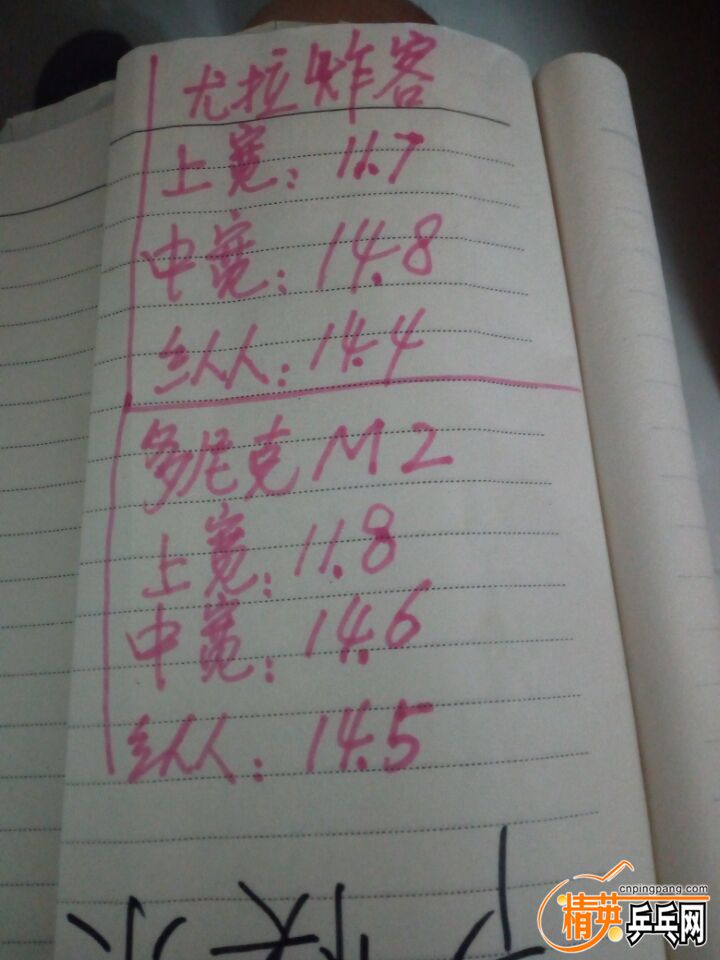 尤拉炸客
上宽：11.7
中宽：14.8
纵：14.4
多尼克M2
上宽：11.8
中宽：14.6
纵：14.5
cnpingpang.com
精英乒乓网